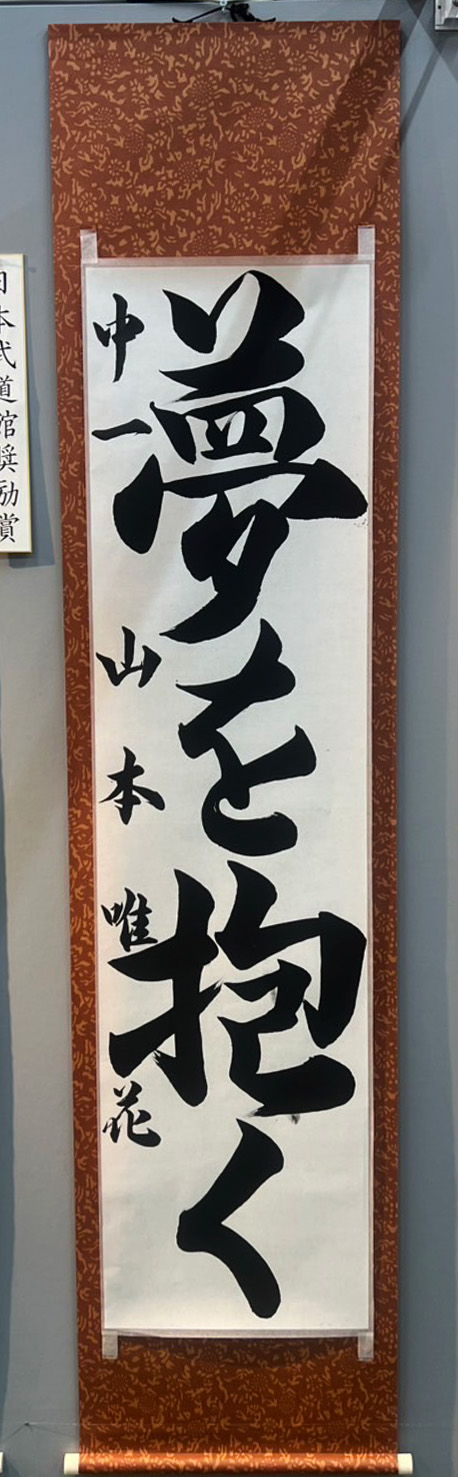 夢を抱く
中一 山本唯花
日本武道館奨励賞